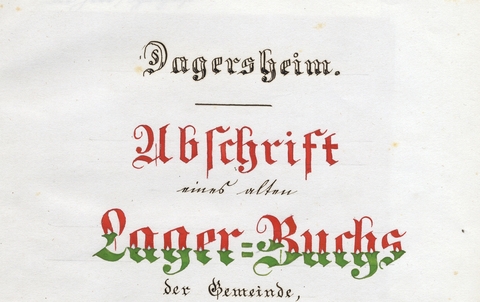 Dagersheim.
Abschrift
eines alten
Lager=Buchs
der Gemeinde,